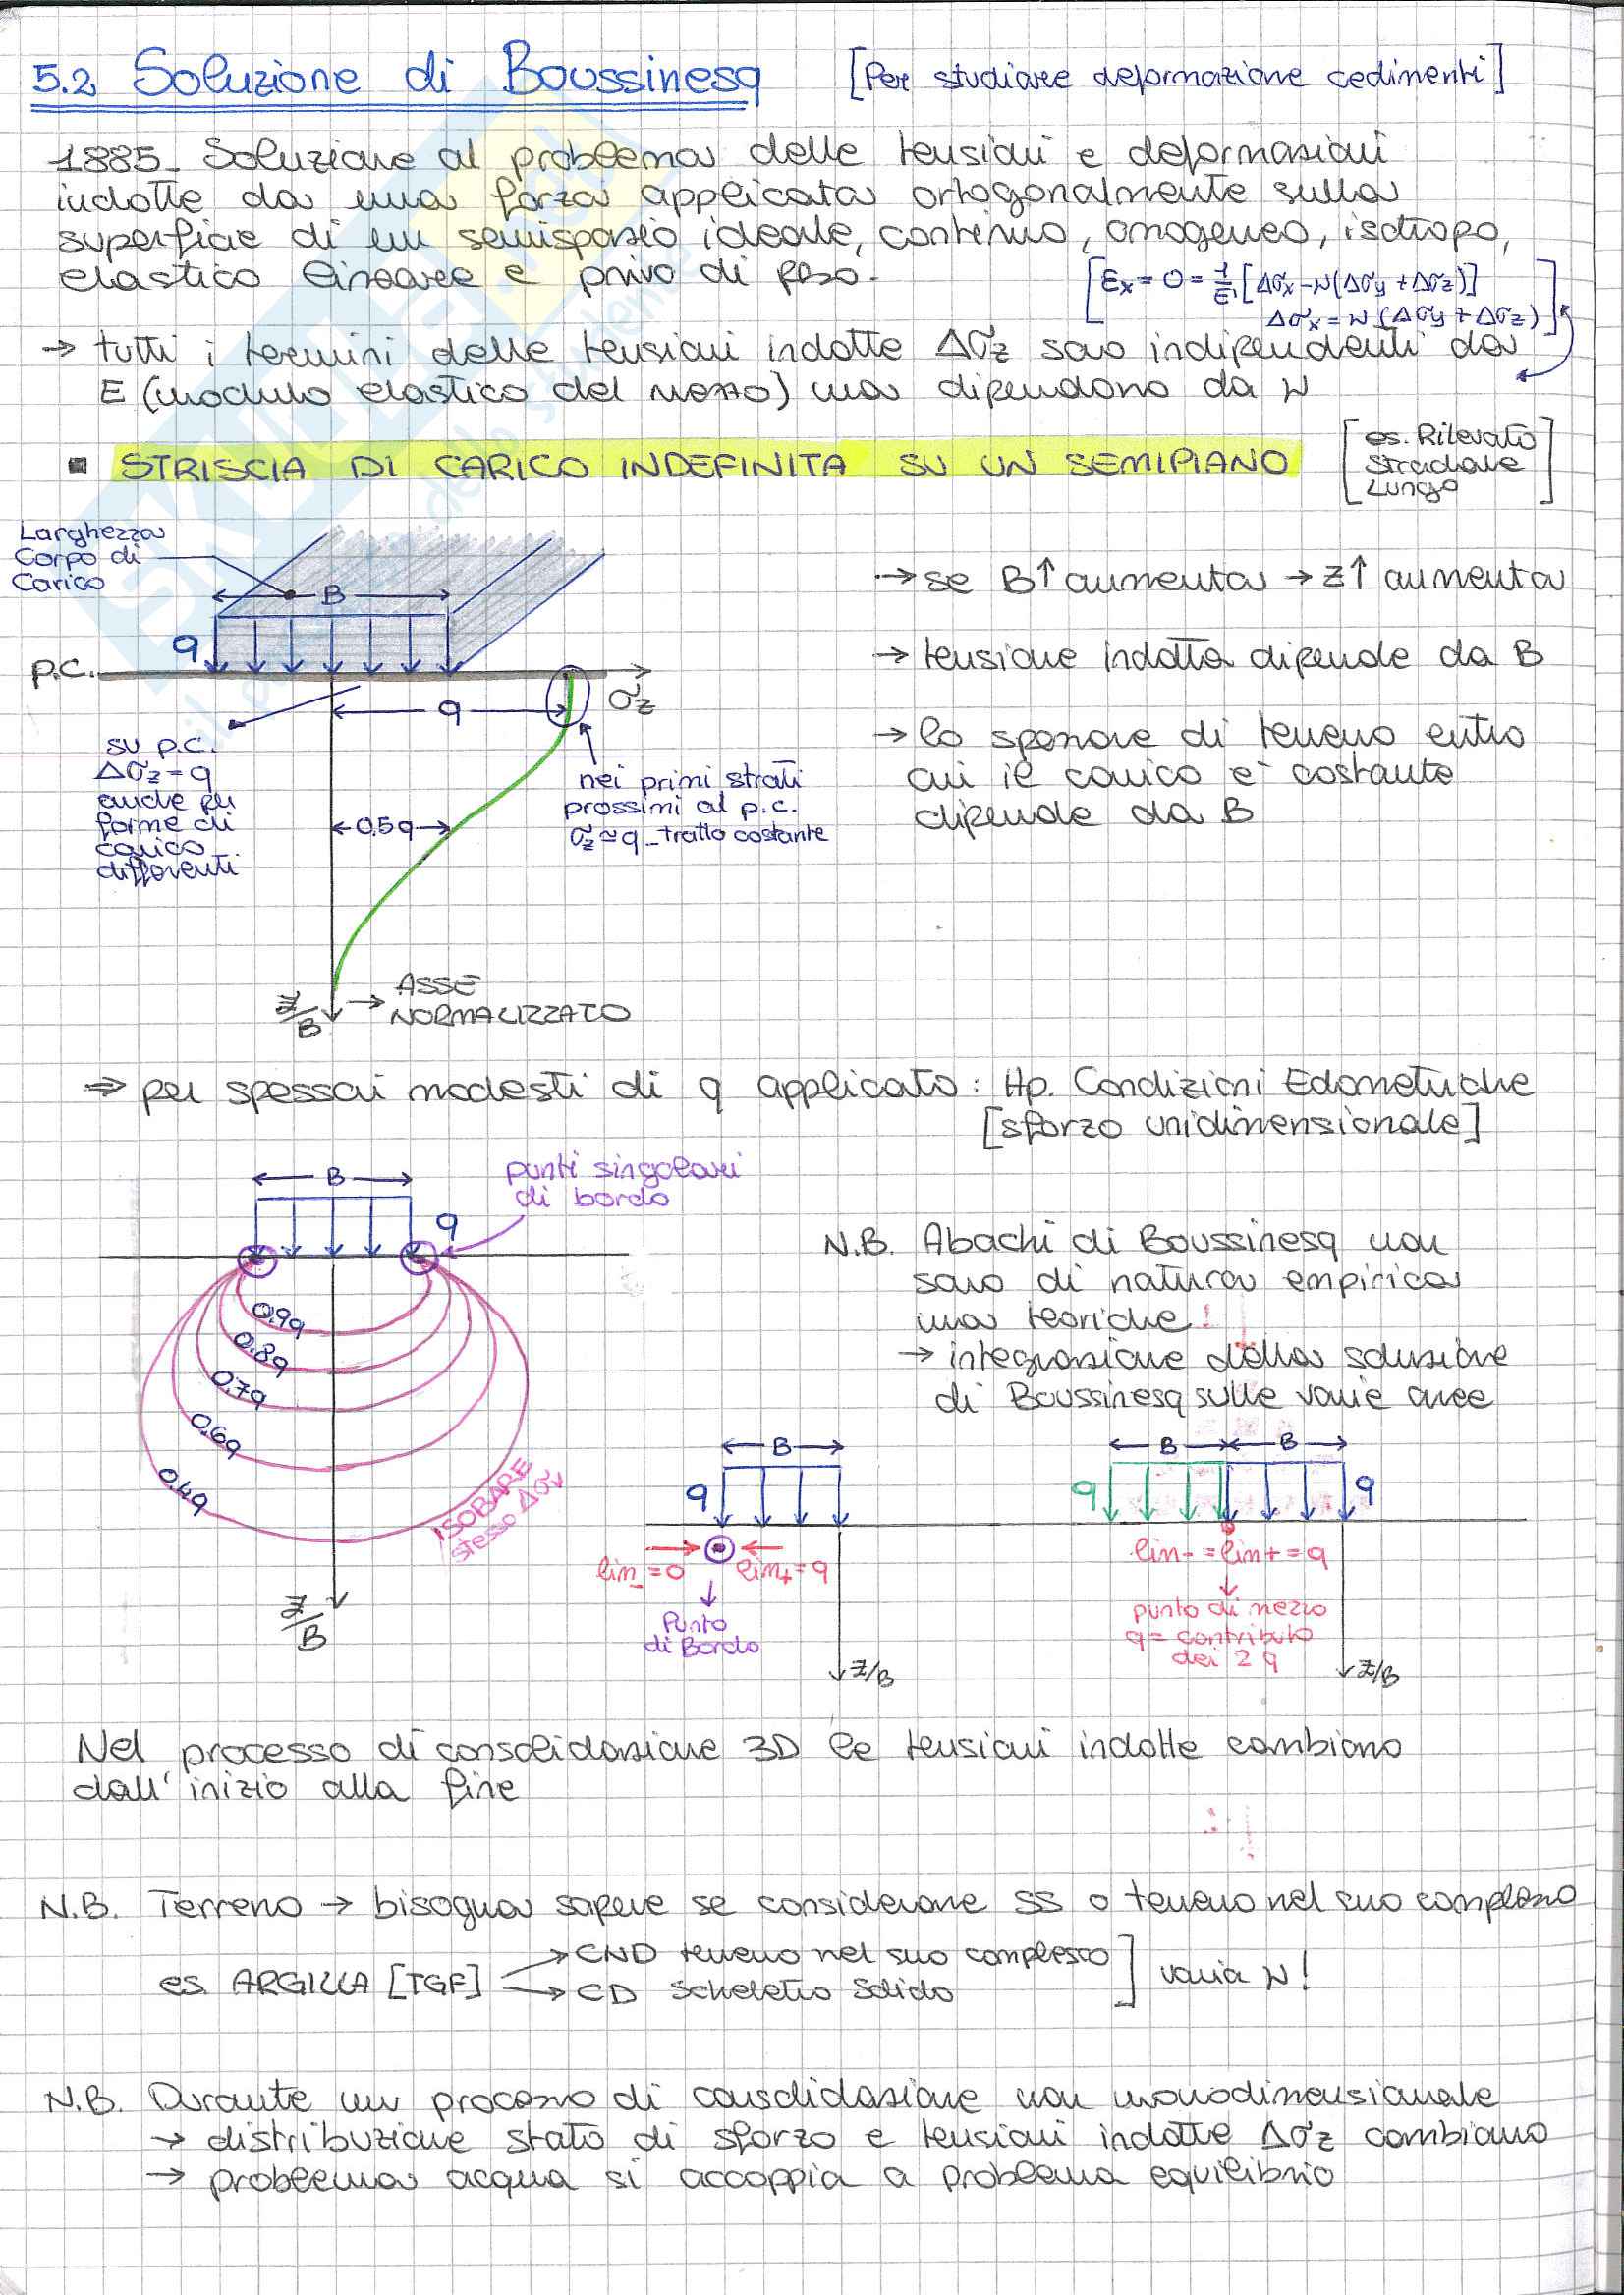 5.2 Soluzione di Boussinesq [Per studiare deformazione cedimenti]
1885_ Soluzione al problema delle tensioni e deformazioni
indotte da una forza applicata ortogonalmente sulla
superficie di un semispazio ideale, continuo, omogeneo, isotropo,
elastico lineare e privo di peso.
[εx = 0 = 1/E [Δσx - ν(Δσy + Δσz)]
Δσx = ν (Δσy + Δσz)]
→ tutti i termini delle tensioni indotte Δσz sono indipendenti da
E (modulo elastico del mezzo) ma dipendono da ν
▪ STRISCIA DI CARICO INDEFINITA SU UN SEMIPIANO
[es. Rilevato
Stradale
Lungo]
Larghezza
Corpo di
Carico
B
q
p.c.
σz
q
su p.c.
Δσz = q
anche per
forme di
carico
differenti
nei primi strati
prossimi al p.c.
σz ≃ q _ tratto costante
0.5q
z/B → ASSE
NORMALIZZATO
→ se B↑ aumenta → z↑ aumenta
→ tensione indotta dipende da B
→ lo spessore di terreno entro
cui il carico è costante
dipende da B
⇒ per spessori modesti di q applicato: Hp. Condizioni Edometriche
[sforzo unidimensionale]
B
q
punti singolari
di bordo
0.9q
0.8q
0.7q
0.6q
0.4q
ISOBARE
stesso Δσv
z/B
N.B. Abachi di Boussinesq non
sono di natura empirica
ma teoriche!
→ integrazione della soluzione
di Boussinesq sulle varie aree
B
q
lim_ = 0
lim+ = q
Punto
di Bordo
z/B
B B
q q
lim- = lim+ = q
punto di mezzo
q = contributo
dei 2 q
z/B
Nel processo di consolidazione 3D le tensioni indotte cambiano
dall'inizio alla fine
N.B. Terreno → bisogna sapere se considerare SS o terreno nel suo complesso
es. ARGILLA [TGF]
→ CND terreno nel suo complesso
→ CD Scheletro Solido
] varia ν!
N.B. Durante un processo di consolidazione non monodimensionale
→ distribuzione stato di sforzo e tensioni indotte Δσz cambiano
→ problema acqua si accoppia a problema equilibrio